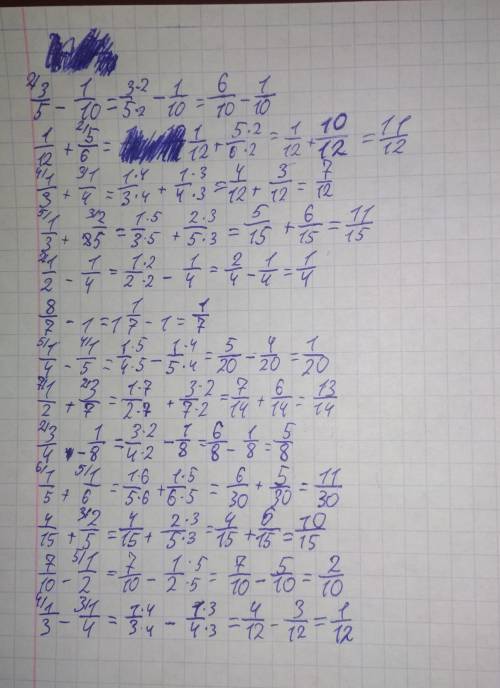 2/3/5 - 1/10 = 3·2/5·2 - 1/10 = 6/10 - 1/10
1/12 + 2/5/6 = 1/12 + 5·2/6·2 = 1/12 + 10/12 = 11/12
4/1/3 + 3/1/4 = 1·4/3·4 + 1·3/4·3 = 4/12 + 3/12 = 7/12
5/1/3 + 3/2/5 = 1·5/3·5 + 2·3/5·3 = 5/15 + 6/15 = 11/15
2/1/2 - 1/4 = 1·2/2·2 - 1/4 = 2/4 - 1/4 = 1/4
8/7 - 1 = 1 1/7 - 1 = 1/7
5/1/4 - 4/1/5 = 1·5/4·5 - 1·4/5·4 = 5/20 - 4/20 = 1/20
7/1/2 + 2/3/7 = 1·7/2·7 + 3·2/7·2 = 7/14 + 6/14 = 13/14
2/3/4 - 1/8 = 3·2/4·2 - 1/8 = 6/8 - 1/8 = 5/8
6/1/5 + 5/1/6 = 1·6/5·6 + 1·5/6·5 = 6/30 + 5/30 = 11/30
4/15 + 3/2/5 = 4/15 + 2·3/5·3 = 4/15 + 6/15 = 10/15
7/10 - 5/1/2 = 7/10 - 1·5/2·5 = 7/10 - 5/10 = 2/10
4/1/3 - 3/1/4 = 1·4/3·4 - 1·3/4·3 = 4/12 - 3/12 = 1/12